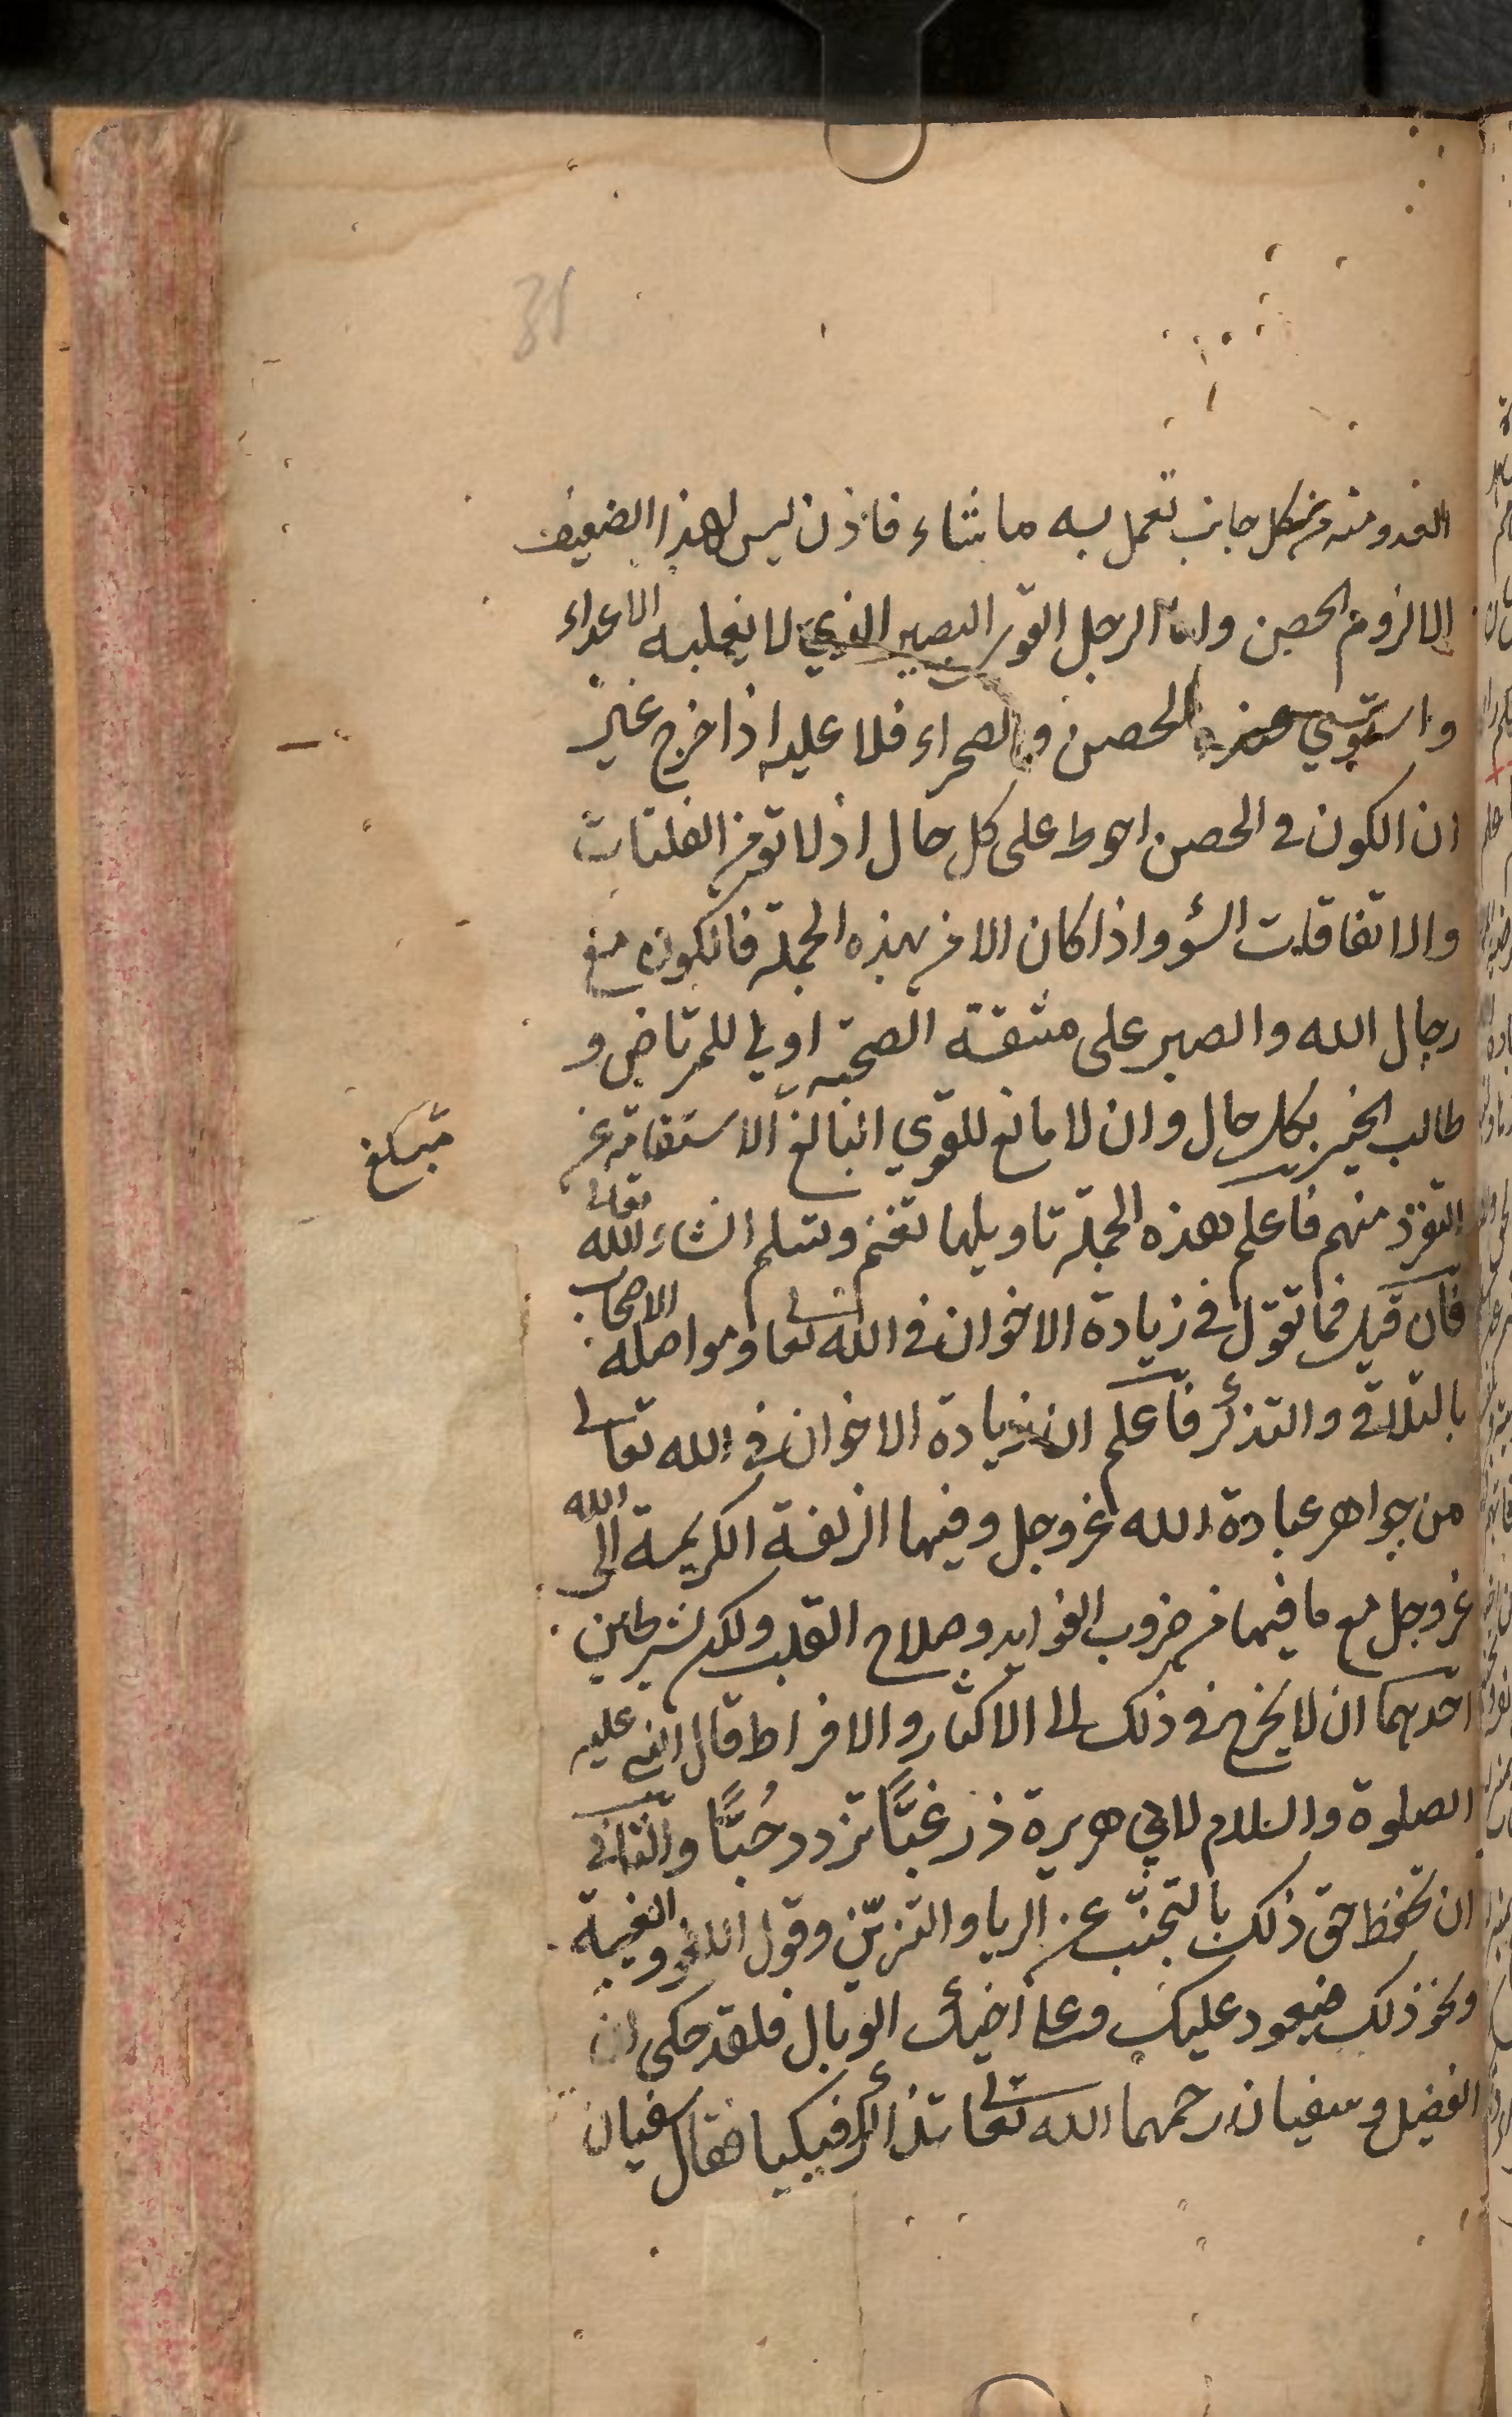 31
العدو منه من كل جانب تعمل به ما شاء فاذن ليس لهذا الضعيف
الا لزوم الحصن واما الرجل القوي البصير الذي لا يغلبه الاعداء
واستوي عنده الحصن والصحراء فلا عليه اذا خرج غير
ان الكون في الحصن احوط على كل حال اذ لا تؤمن الفلتات
والاتفاقات السؤ واذا كان الامر بهذه الجملة فالكون مع
رجال الله والصبر على مشقة الصحبة اولي للمرتاض و
طالب الخير بكل حال وان لا مانع للقوي البالغ الاستقامة عن
التفرد منهم فاعلم هذه الجملة تاويلها تغنم وتسلم انشاء الله تعالى
فان قيل فما تقول في زيادة الاخوان في الله تعالى ومواصلة الاصحاب
بالتلاقي والتذكر فاعلم ان زيادة الاخوان في الله تعالى
من جواهر عبادة الله عز وجل وفيها الزلفة الكريمة الى الله
عز وجل مع ما فيها من ضروب الفوايد وصلاح القلب ولكن بشرطين
احدهما ان لا يخرج في ذلك الى الاكثار والافراط قال النبي عليه
الصلوة والسلام لابي هريرة ذر غبًّا تزدد حُبًّا والثاني
ان تحفظ حق ذلك بالتجنب عن الريا والتزين وقول اللغو والغيبة
ونحو ذلك فيعود عليك وعلى أخيك الوبال فلقد حكى ان
الفضيل وسفيان رحمهما الله تعالى تذاكرا فبكيا فقال سفيان